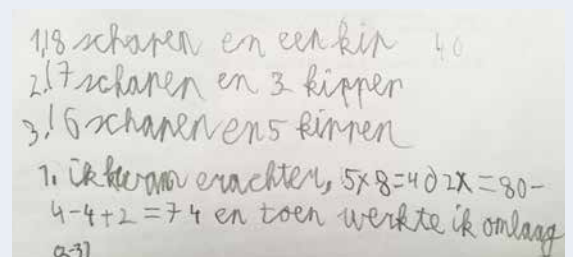 1,18 schapen en een kip 40
2,17 schapen en 3 kippen
3,16 schapen en 5 kippen
1. ik kwam erachter, 5x8=40 2x=80-
4-4+2=74 en toen werkte ik omlaag